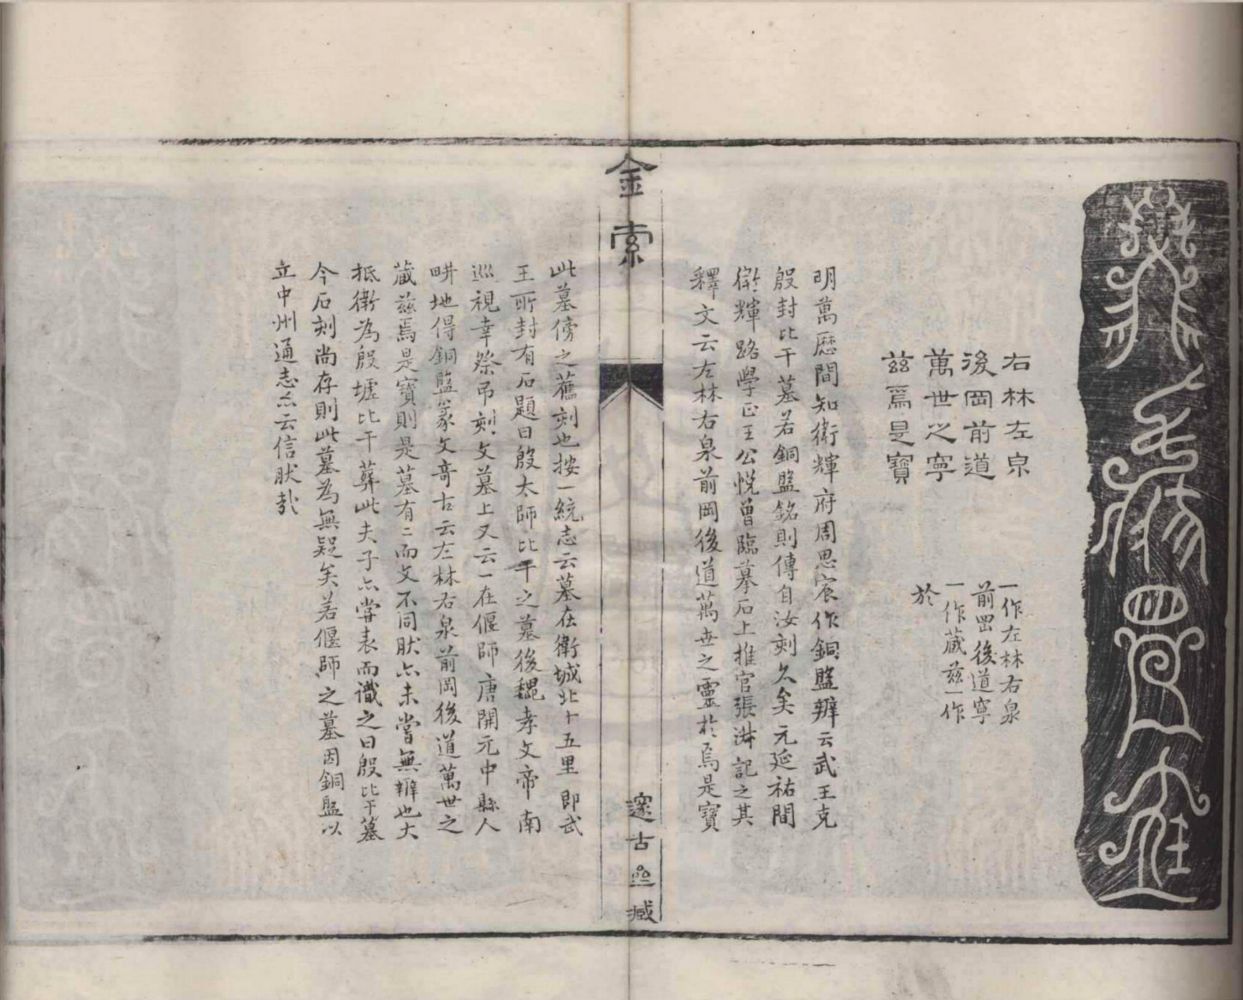 右林左泉
後岡前道
萬世之寧
兹焉是寶
一作左林右泉
前岡後道寧
一作藏兹一作
於
明萬厯間知衛輝府周思宸作銅盤辨云武王克
殷封比干墓若銅盤銘則傳自汝刻久矣元延祐間
衛輝路學正王公悅曾臨摹石上推官張淋記之其
釋文云左林右泉前岡後道萬世之靈於焉是寶
金索
邃古亝臧
此墓傍之舊刻也按一統志云墓在衛城北十五里即武
王所封有石題曰殷太師比干之墓後魏孝文帝南
巡視幸祭吊刻文墓上又云一在偃師唐開元中縣人
畊地得銅盤篆文奇古云左林右泉前岡後道萬世之
藏兹焉是寶則是墓有二而文不同肰亦未嘗無辨也大
抵衛為殷墟比干葬此夫子亦嘗表而識之曰殷比干墓
今石刻尚存則此墓為無疑矣若偃師之墓因銅盤以
立中州通志亦云信肰㢤